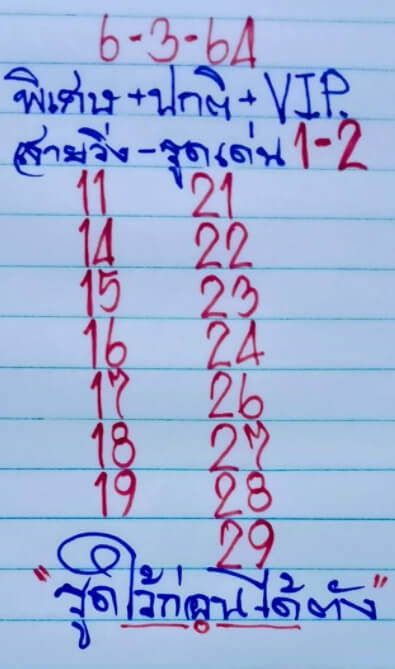 6-3-64
พิเศษ+ปกติ+VIP.
สายวิ่ง-รูดเด่น 1-2
11 21
14 22
15 23
16 24
17 26
18 27
19 28
29
"รูดไว้ก่อนได้ตัง"